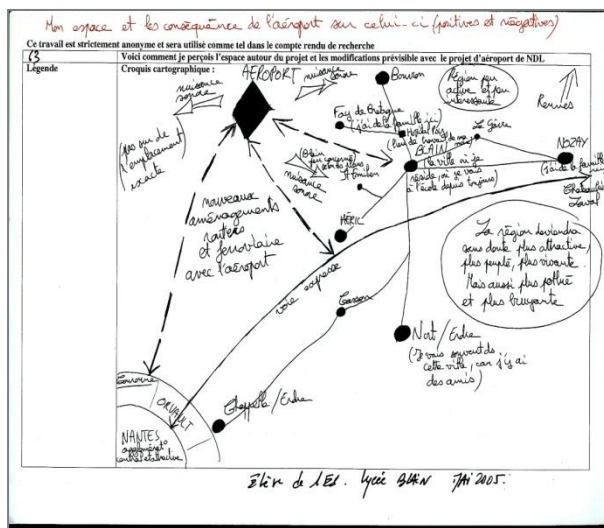 Mon espace et les conséquence de l'aéroport sur celui-ci (positives et négatives)
Ce travail est strictement anonyme et sera utilisé comme tel dans le compte rendu de recherche
63
Voici comment je perçois l'espace autour du projet et les modifications prévisible avec le projet d'aéroport de NDL
Légende
Croquis cartographique :
AÉROPORT
nuisance
sonore
nuisance
sonore
(pas sur de
l'emplacement)
exacte
Bouvron
Région peu
active et peu
intéressante
Rennes
Fay de Bretagne
(j'ai de la famille ici)
Hôpital
(lieu de travail de ma
BLAIN
(la ville où je
réside, où je vais
à l'école depuis toujours)
Le Gâvre
NOZAY
(j'ai de la famille
Chateaubriant
Laval
(Blain
peu concerné
nuisance
sonore
St Emilien
HÉRIC
nouveaux
aménagements
routiers
et ferroviaire
avec l'aéroport
voie expresse
La région deviendra
sans doute plus attractive,
plus peuplé, plus vivante.
Mais aussi plus pollué
et plus bruyante
Casson
Nort / Erdre
(Je vais souvent ds
cette ville, car j'y ai
des amis)
Chappelle / Erdre
Couronne
ORVAULT
NANTES
agglomérat°
central et attractive
Elève de 1 ES. Lycée BLAIN MAI 2005.